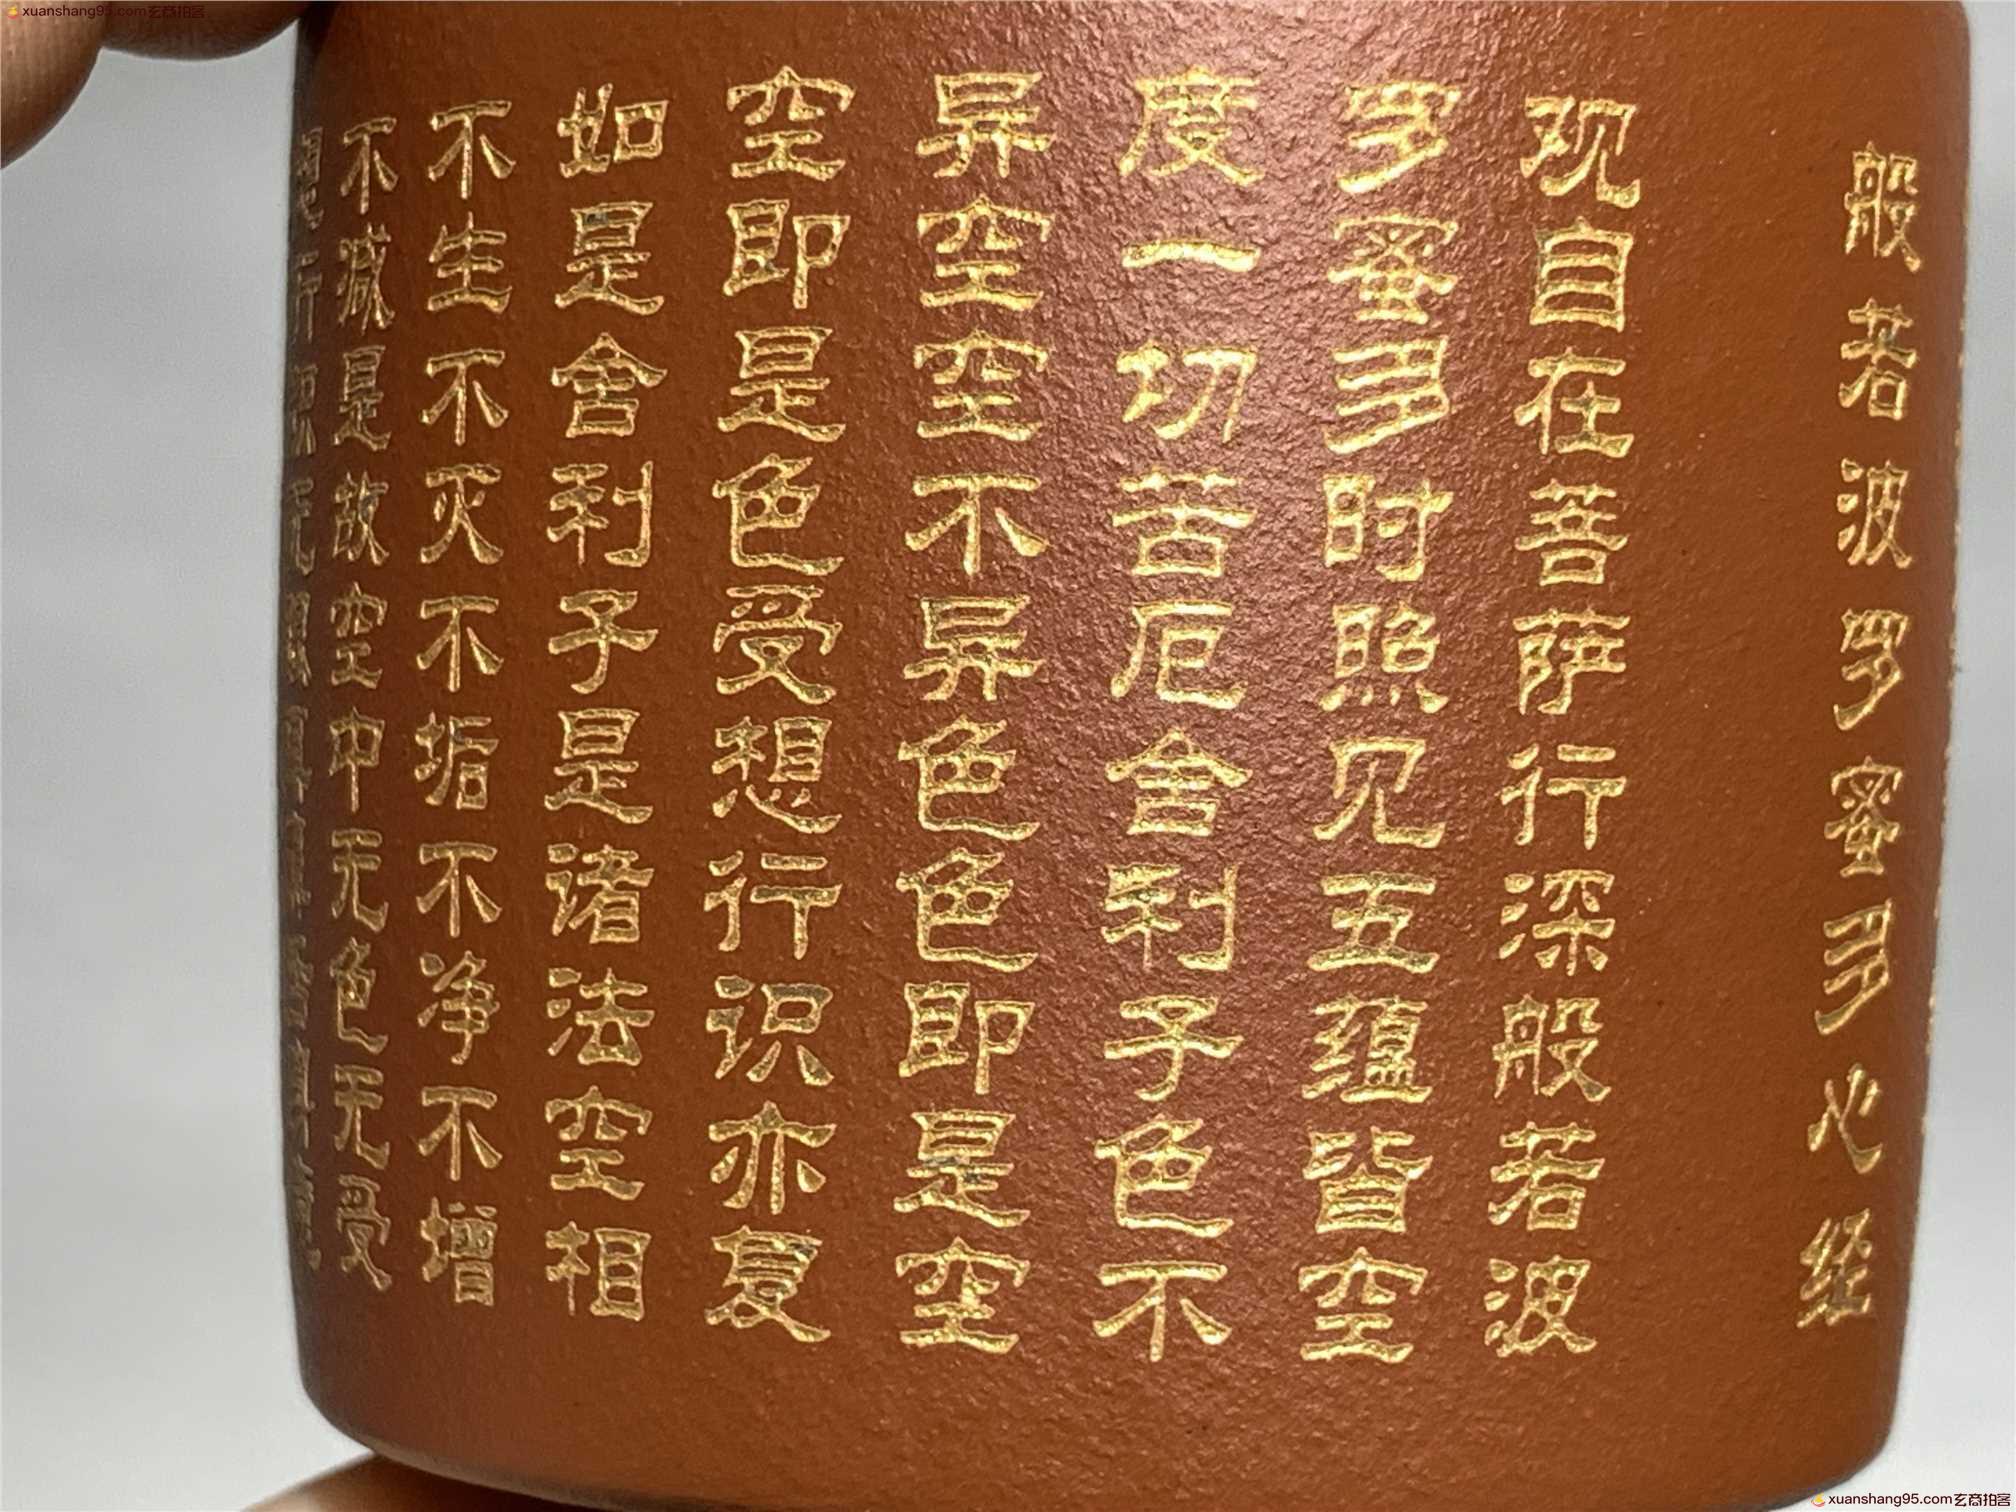 xuanshang95.com玄商拍客
般若波罗蜜多心经
观自在菩萨行深般若波
罗蜜多时照见五蕴皆空
度一切苦厄舍利子色不
异空空不异色色即是空
空即是色受想行识亦复
如是舍利子是诸法空相
不生不灭不垢不净不增
不减是故空中无色无受
xuanshang95.com玄商拍客